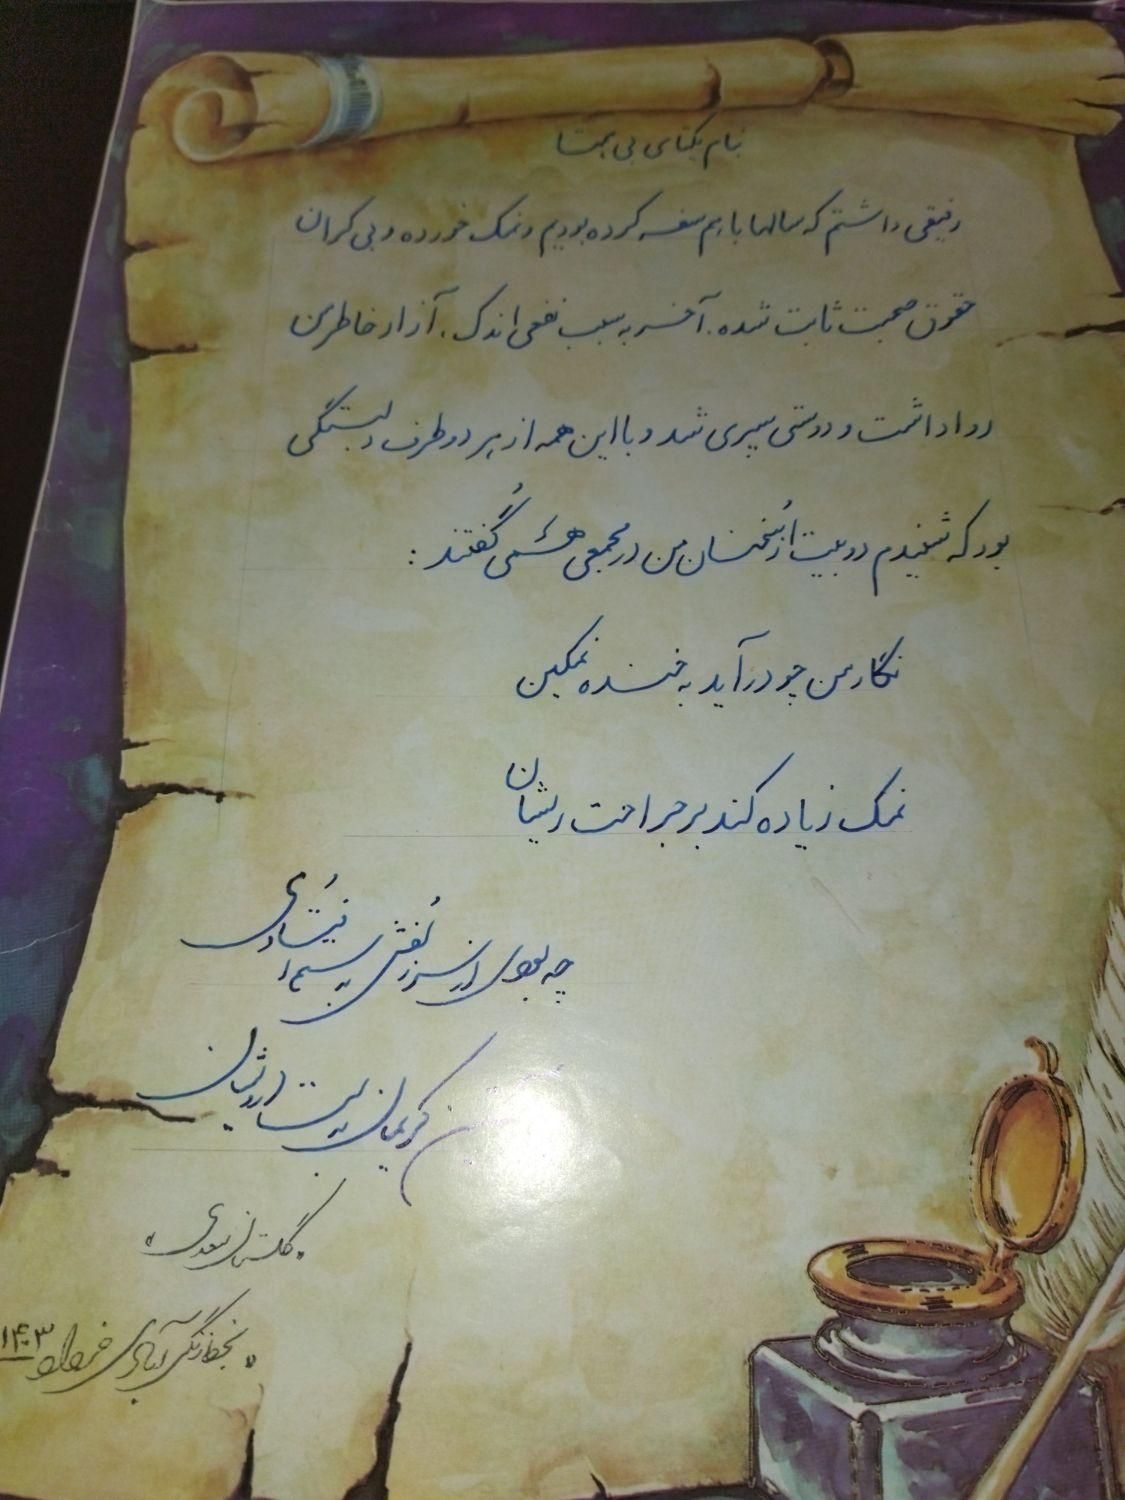 بنام یکتای بی همتا
رفیقی داشتم که سالها با هم سفر کرده بودیم و نمک خورده و بی کران
حقوق صحبت ثابت شده. آخر به سبب نفعی اندک. آزار خاطر من
روا داشت و دوستی سپری شد و با این همه از هر دو طرف دلبستگی
بود که شنیدم دو بیت از سُخنان من در مجمعی همی گُفتند :
نگار من چو درآید به خنده نمکین
نمک زیاده کند بر جراحت ریشان
چه بودی ار سر زُلفش به دستم اُفتادی
کریمان به دست درویشان
گلستان سعدی
بخط زنگی آبادی خرداد ۱۴۰۳